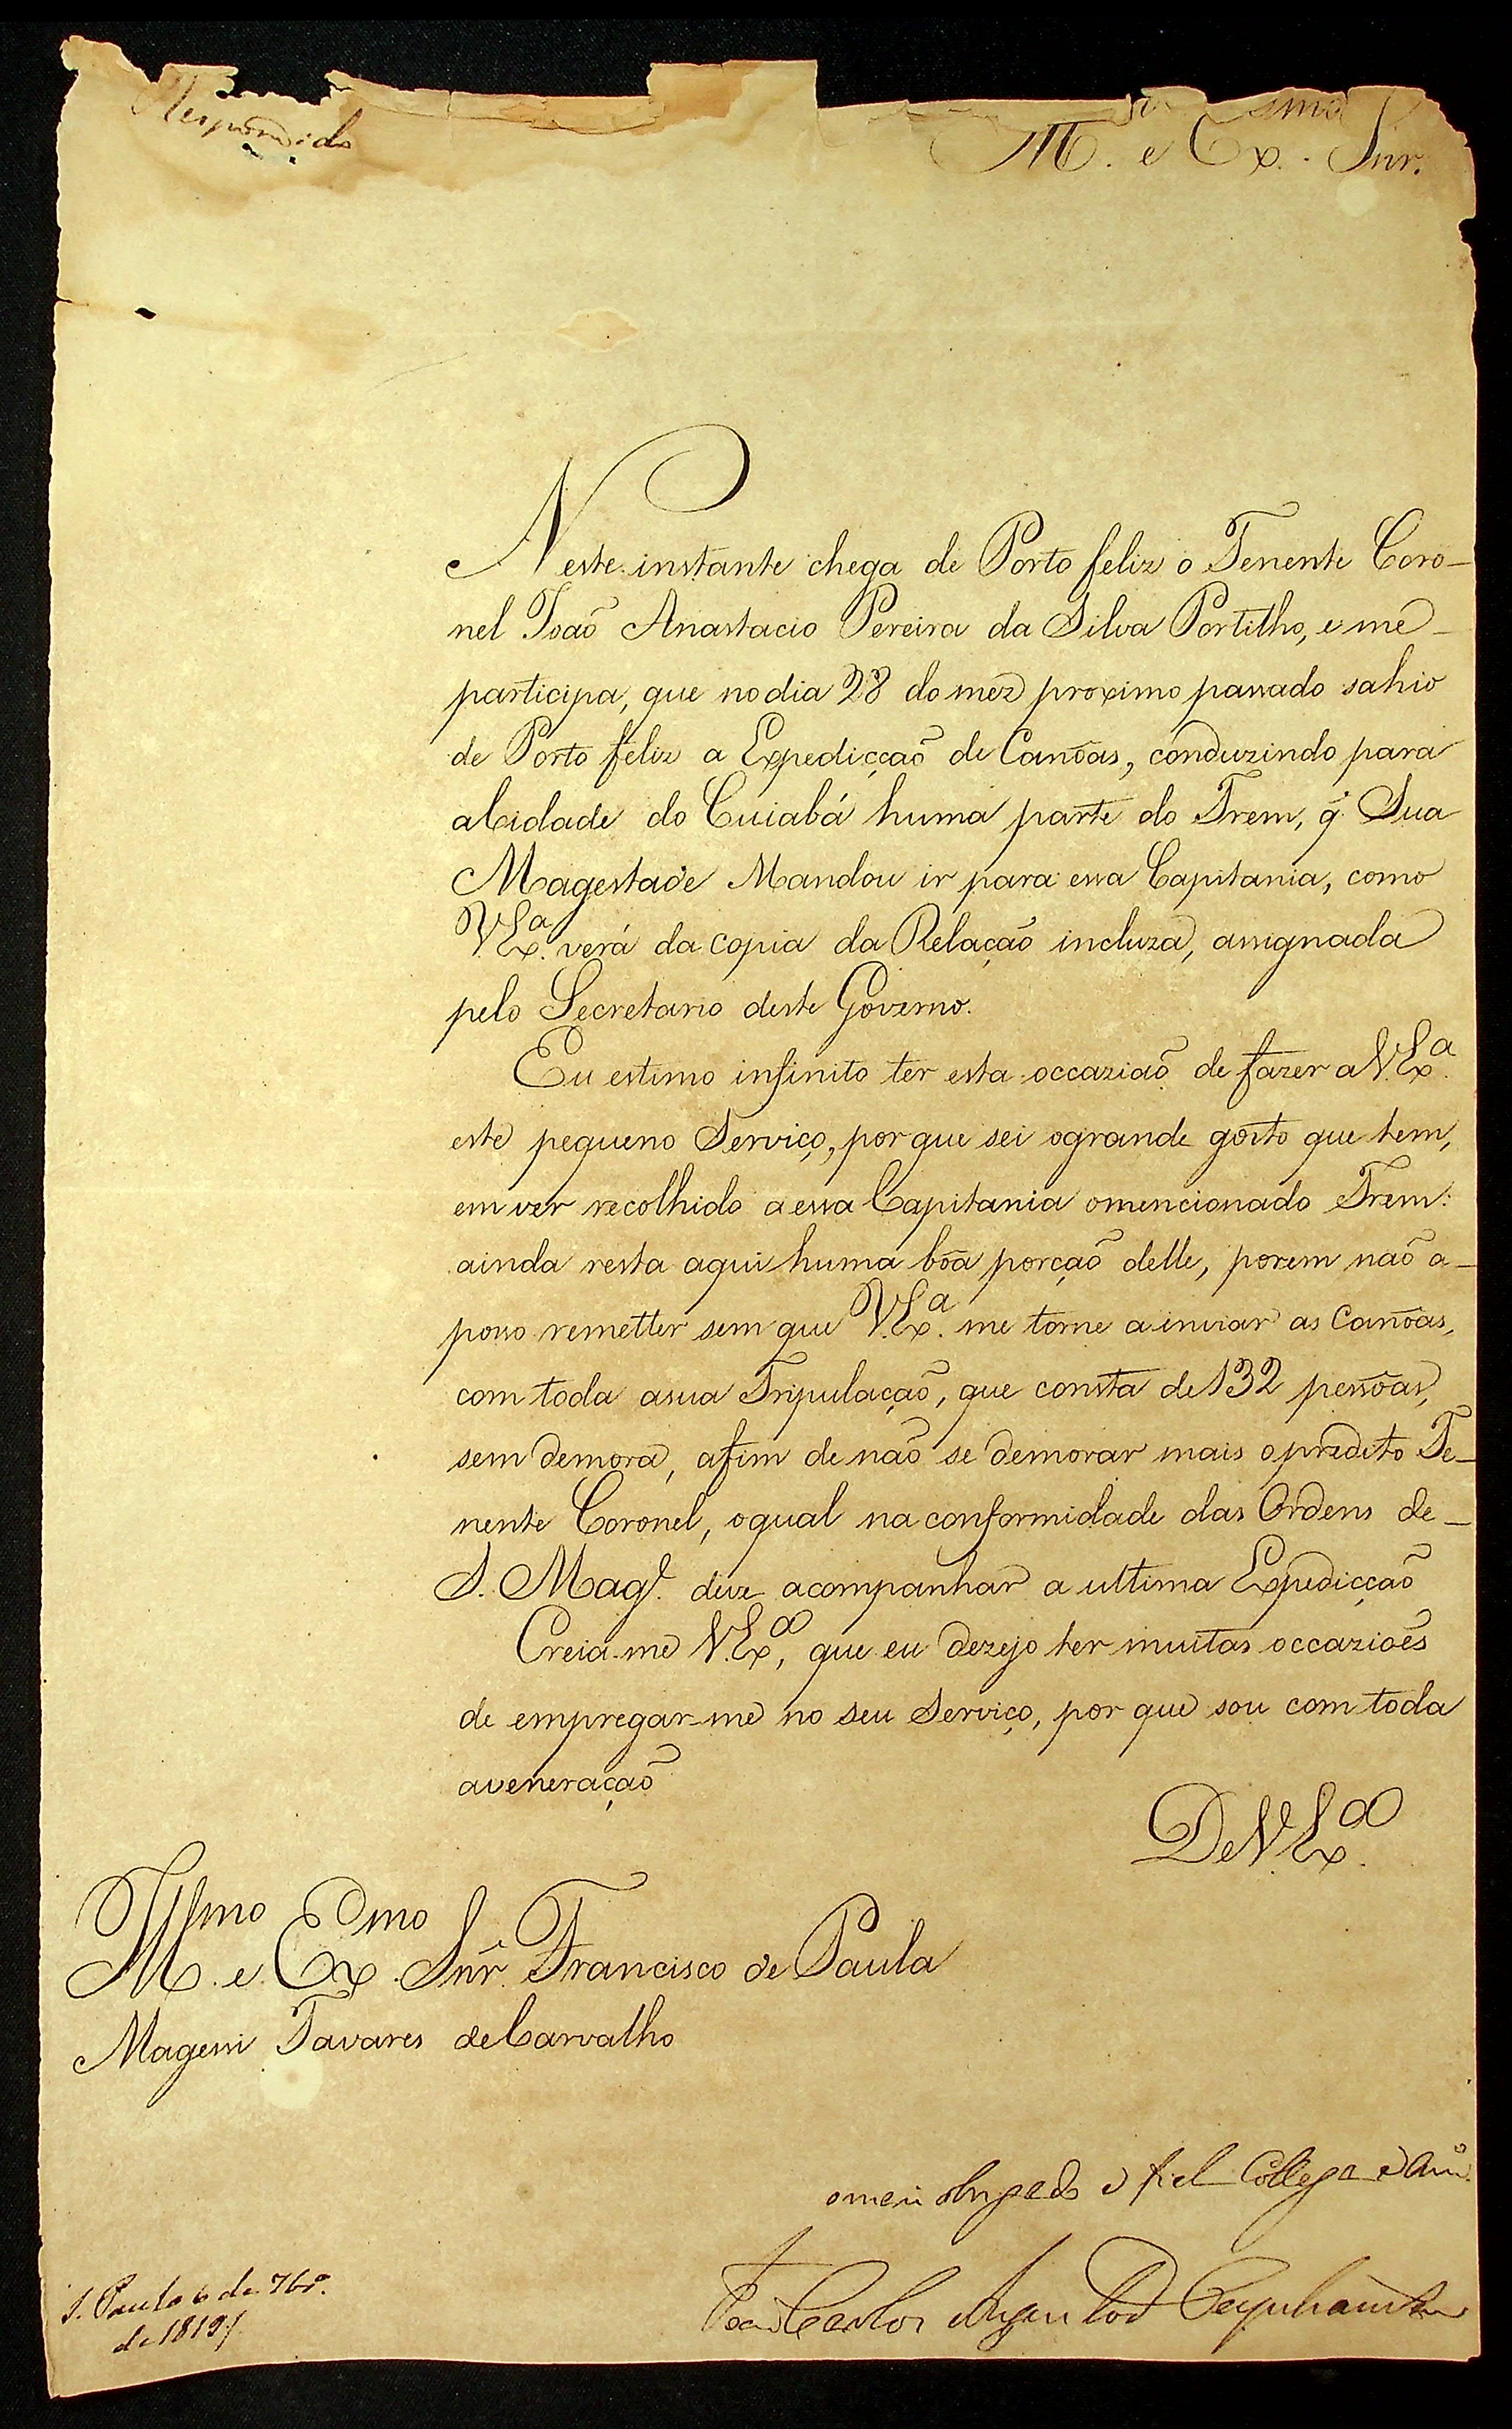 Respondido
Ill.mo e Ex.mo Snr.
Neste instante chega de Porto feliz o Tenente Coro-
nel João Anastacio Pereira da Silva Portilho, e me
participa, que no dia 28 do mez proximo passado sahio
de Porto feliz a Expedicção de Canôas, conduzindo para
a Cidade do Cuiabá huma parte do Trem, q̃ Sua
Magestade Mandou ir para essa Capitania, como
V. Ex.a verá da copia da Relação incluza, assignada
pelo Secretario deste Governo.
Eu estimo infinito ter esta occazião de fazer a V. Ex.a
este pequeno Serviço, por que sei o grande gosto que tem,
em ver recolhido a essa Capitania o mencionado Trem:
ainda resta aqui huma bôa porção delle, porem não a-
posso remetter sem que V. Ex.a me torne a inviar as Canôas,
com toda a sua Tripulação, que consta de 132 pessôas,
sem demora, afim de não se demorar mais o predito Te-
nente Coronel, o qual na conformidade das Ordens de-
S. Mag.e deve acompanhar a ultima Expedicção
Creia-me V. Ex.a, que eu dezejo ter muitas occaziões
de empregar-me no seu Serviço, por que sou com toda
a veneração
De V. Ex.a
Ill.mo e Ex.mo Snr. Francisco de Paula
Magessi Tavares de Carvalho
o mais obrigado e fiel Collega e Am.o
S. Paulo 6 de 7br.o
de 1819
João Carlos Augusto d'Oeynhausen